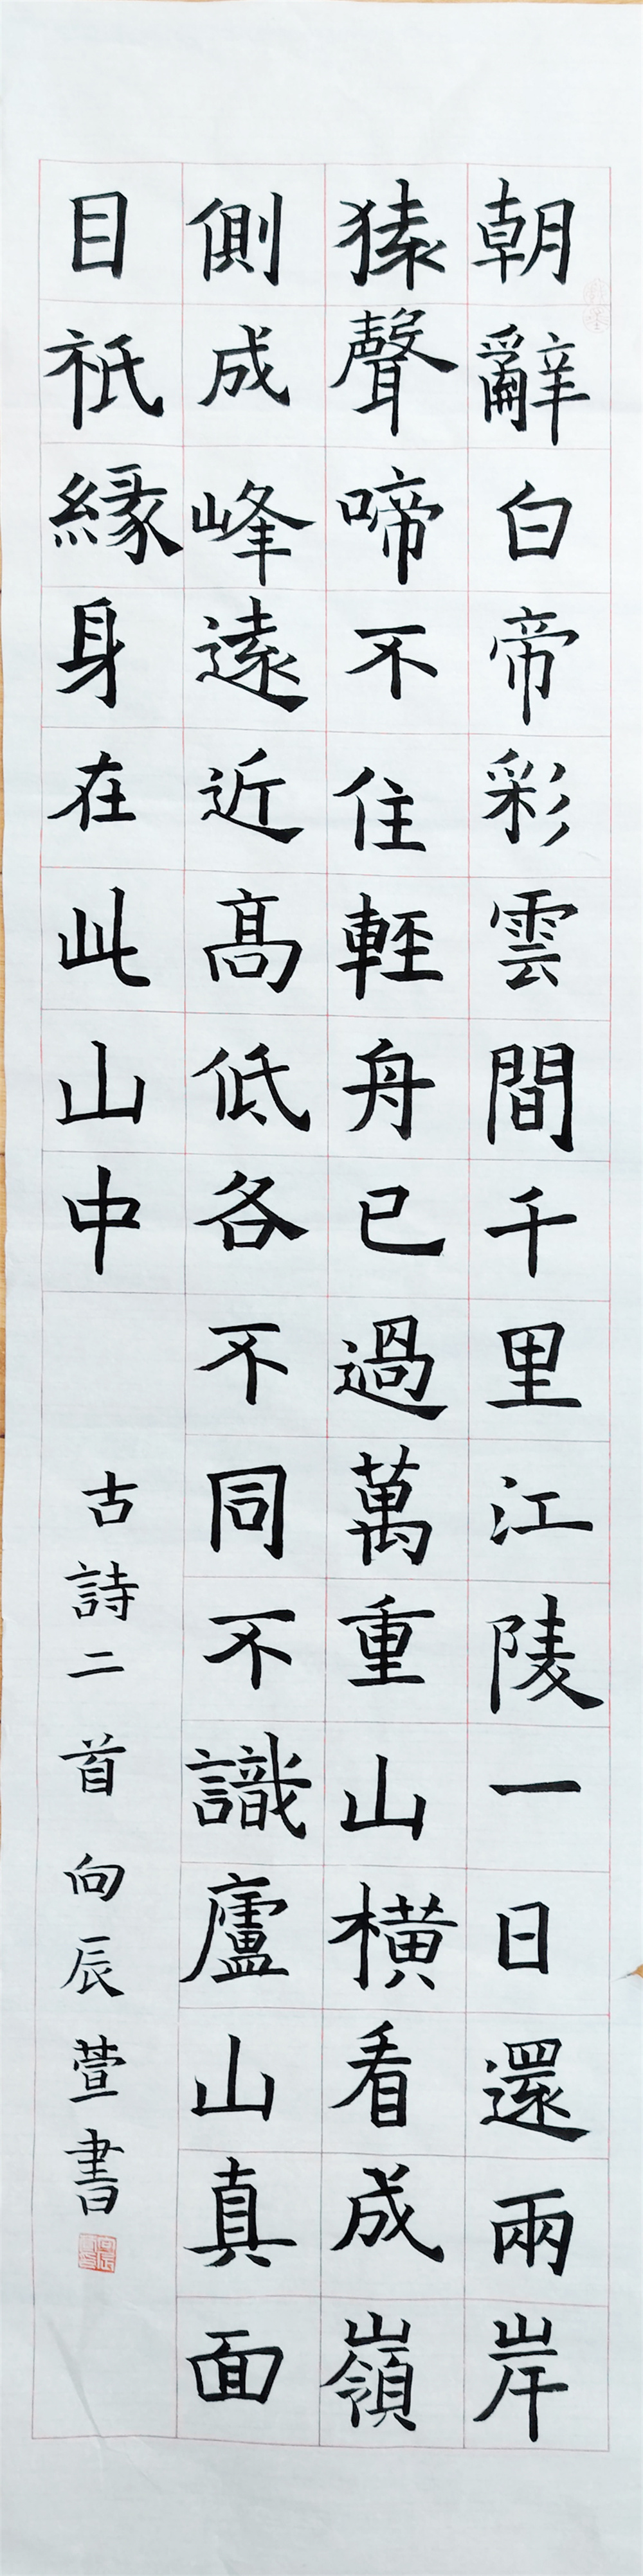 朝辭白帝彩雲間千里江陵一日還兩岸
猿聲啼不住輕舟已過萬重山橫看成嶺
側成峰遠近高低各不同不識廬山真面
目祇緣身在此山中
古詩二首向辰萱書